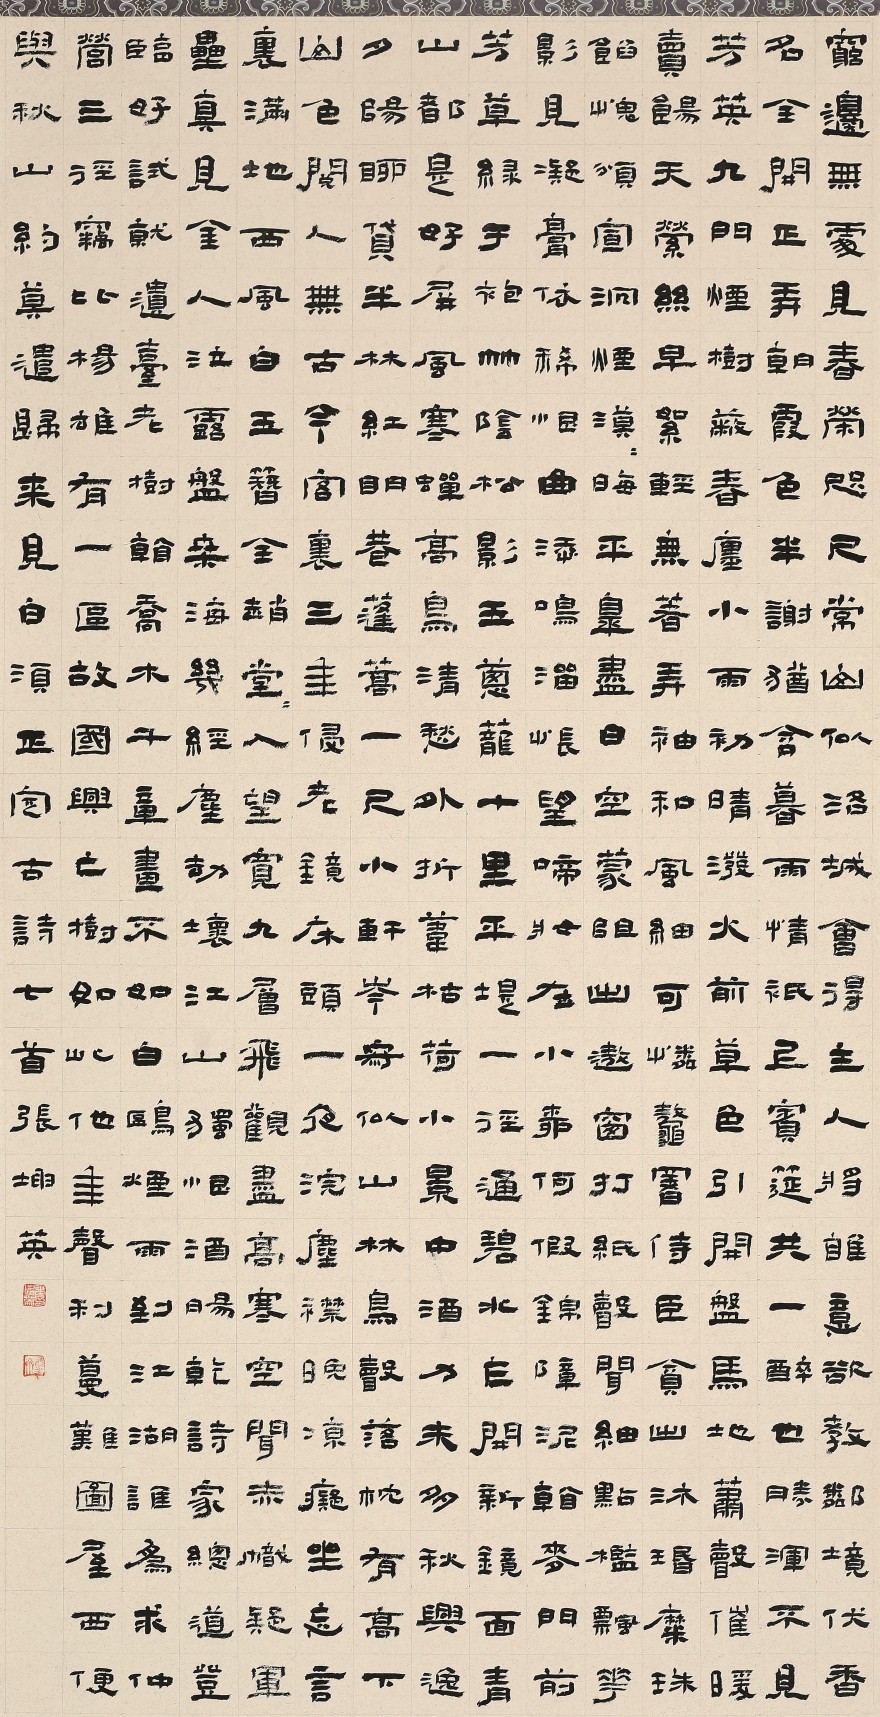 窮邊無處見春榮咫尺常山似洛城會得主人將雅意欲教鄰境伏香
名全開正弄朝霞色半謝猶含暮雨情祇恐賓筵共一醉也勝渾不見
芳英九門煙樹蔽春廛小雨初晴潑火前草色引開盤馬地蕭聲催暖
賣餳天縈絲早絮輕無著弄袖和風細可憐鼇署侍臣貧出沐瑒糜珠
餡愧頒宣洞煙漠漠晦平皋盡日空蒙阻出遨窗打紙聲聞細點檻飄華
影見凝膏依稀恨曲添鳴湍悵望啼妝在小桃何假錦障泥翰麥門前
芳草綠于袍竹陰松影玉蔥蘢十里平堤一徑通碧水乍開新鏡面青
山都是好屏風寒蟬高鳥清愁外折葦枯荷小景中酒力未多秋興逸
夕陽聊貸半林紅明巷蓬蒿一尺小軒岑寂似山林鳥聲落枕有高下
山色閱人無古今窗裏三年侵老鏡床頭一卷浣塵襟晚涼癡坐忘言
裏滿地西風白玉簪全趙堂入望寬九層飛觀盡高寒空聞赤幟疑軍
壘真見金人泣露盤桑海幾經塵劫壞江山獨恨酒腸乾詩家總道登
臨好試就遺臺老樹翰喬木千章畫不如白鷗煙雨到江湖誰為求仲
營三徑竊比楊雄有一區故國興亡樹如此他年聲利蔓難圖屋西便
與秋山約莫遣歸來見白須正定古詩七首張坤英